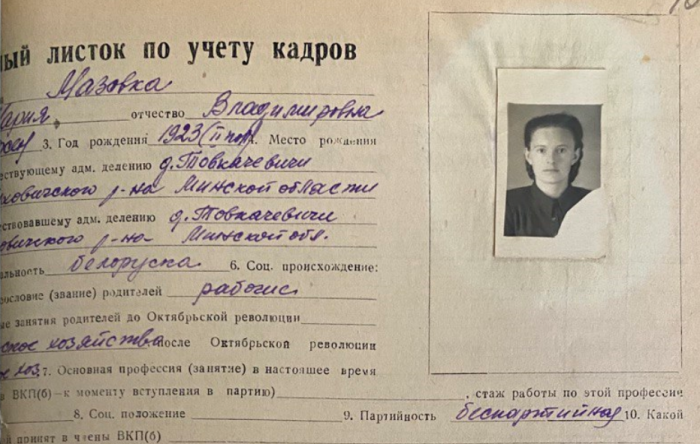 ный листок по учету кадров
Мазовка
Мария отчество Владимировна
3. Год рождения 1923 Место рождения
ствующему адм. делению д. Товкачевичи
ховичского р-на Минской области
ствовавшему адм. делению д. Товкачевичи
овичского р-на Минской обл.
альность белоруска 6. Соц. происхождение:
ословие (звание) родителей рабочие
ые занятия родителей до Октябрьской революции
ское хозяйство после Октябрьской революции
хоз. 7. Основная профессия (занятие) в настоящее время
в ВКП(б)—к моменту вступления в партию) , стаж работы по этой профессии
8. Соц. положение 9. Партийность беспартийная 10. Какой
принят в члены ВКП(б)